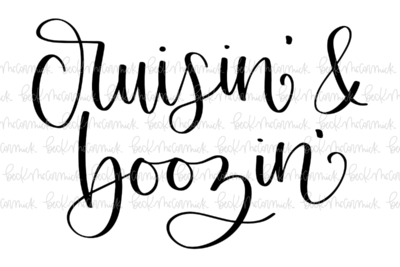 cruisin' &
boozin'